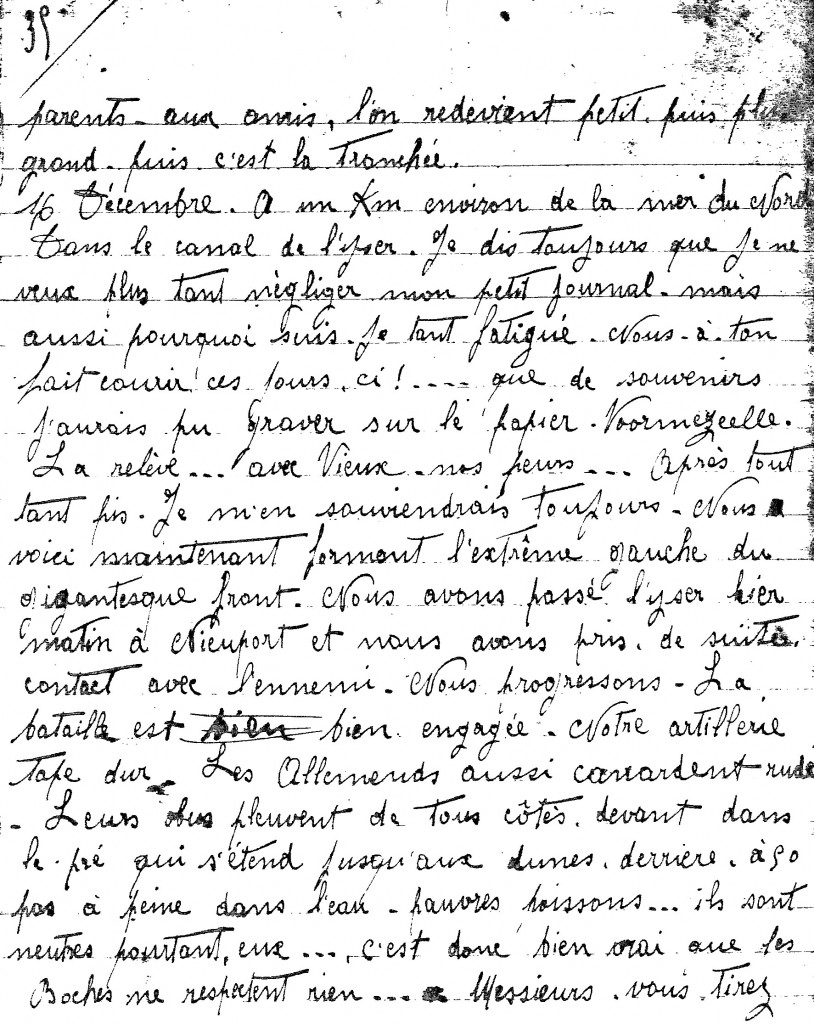 35
parents - aux amis, l'on redevient petit. puis plus
grand - puis c'est la Tranchée.
16 Décembre. A un Km environ de la mer du Nord
Dans le canal de l'yser. Je dis toujours que je ne
veux plus tant négliger mon petit journal - mais
aussi pourquoi suis-je tant fatigué. Nous-à-ton
fait courir ces jours-ci! .... que de souvenirs
j'aurais pu graver sur le papier. Voormezeelle.
La relève... avec Vieux - nos peurs... Après tout
tant pis. Je m'en souviendrais toujours - Nous
voici maintenant formant l'extrême gauche du
gigantesque front. Nous avons passé l'yser hier
matin à Nieuport et nous avons pris. de suite.
contact avec l'ennemi - Nous progressons - La
bataille est bien bien engagée. Notre artillerie
Tape dur - Les Allemends aussi canardent rude
- Leurs obus pleuvent de tous côtés. devant dans
le pré qui s'étend jusqu'aux dunes. derrière. à 50
pas à peine dans l'eau - pauvres poissons... ils sont
neutres pourtant, eux..., c'est donc bien vrai que les
Boches ne respectent rien... Messieurs. vous. tirez